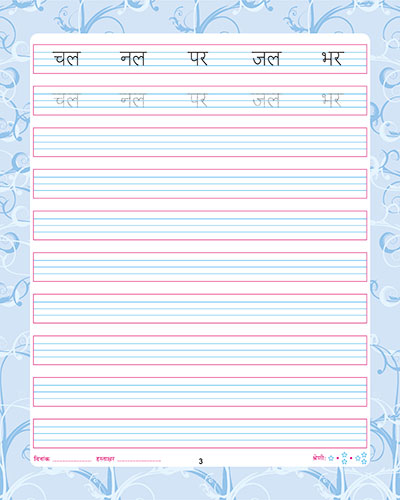 चल नल पर जल भर
चल नल पर जल भर
दिनांक ........................ हस्ताक्षर ........................ 3 श्रेणी: